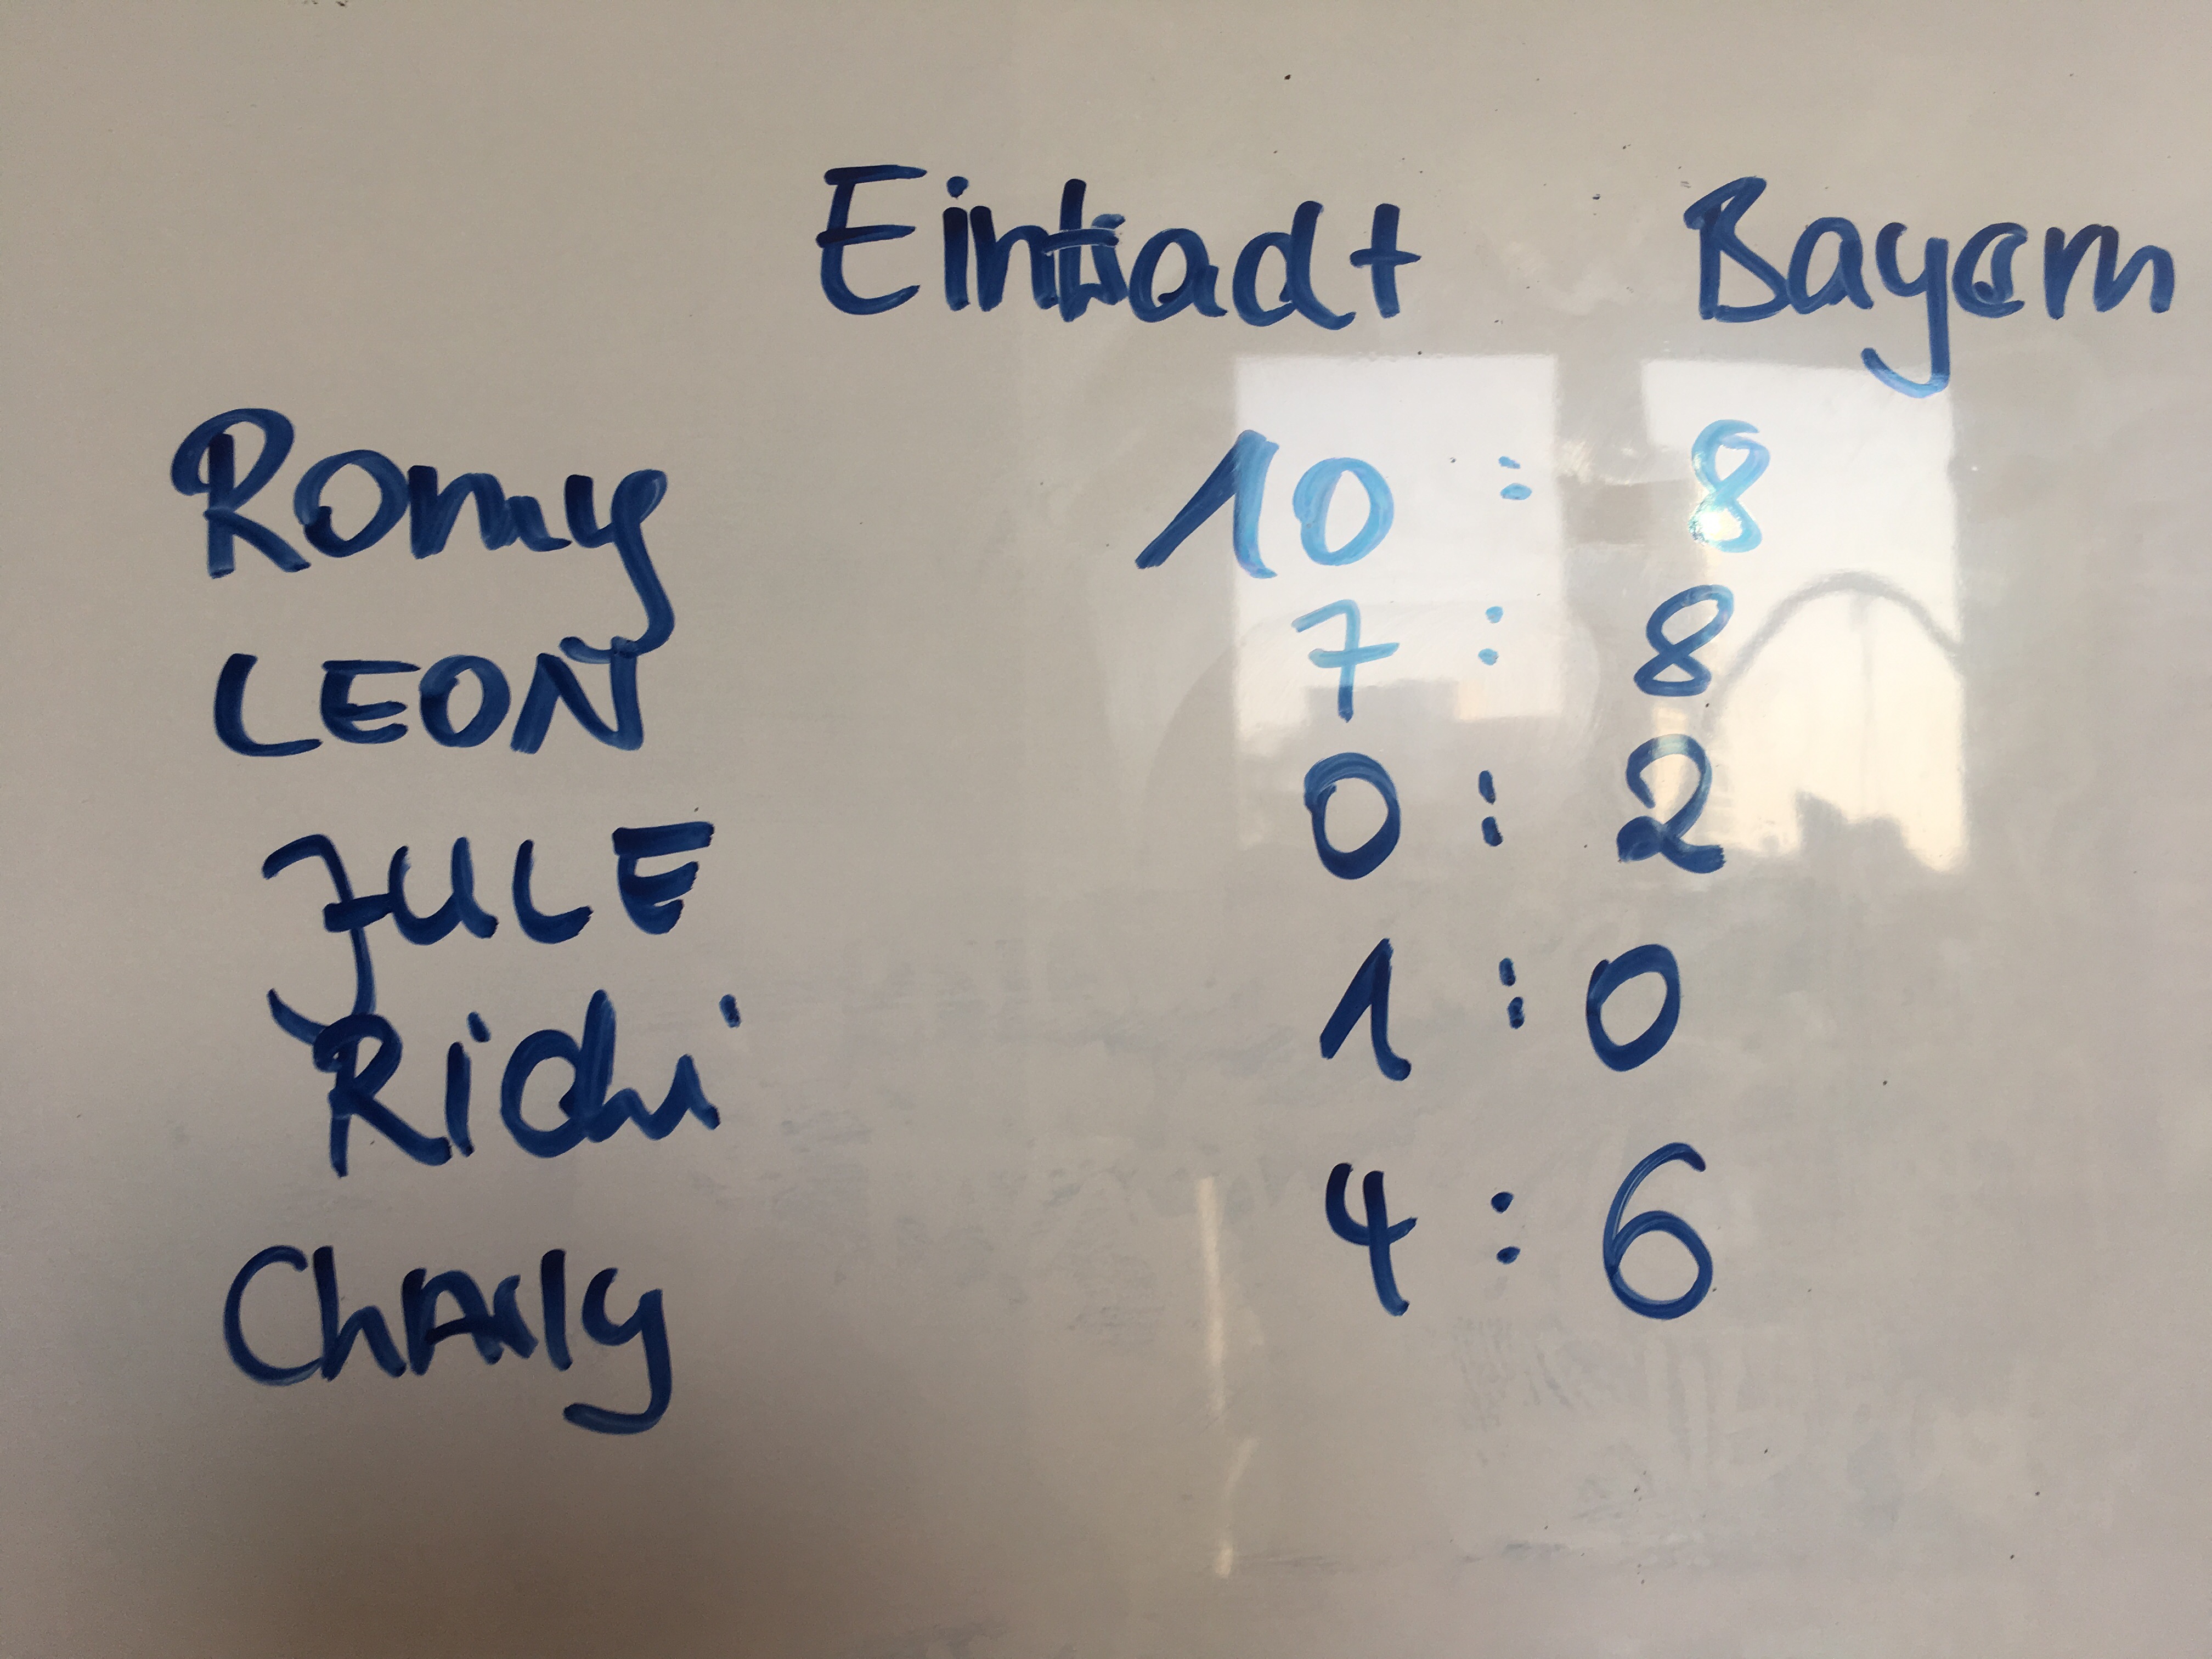 Eintradt Bayern
Romy 10 : 8
LEON 7 : 8
JULE 0 : 2
Richi 1 : 0
ChArly 4 : 6